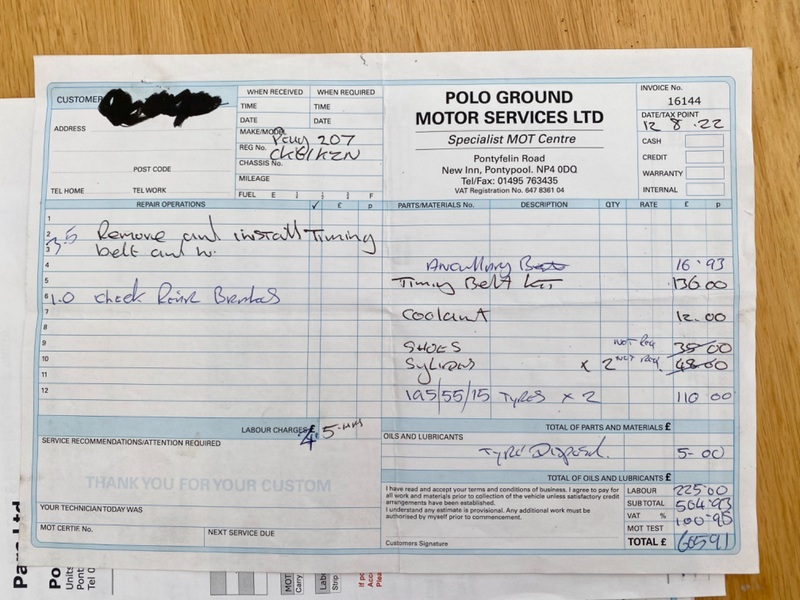 CUSTOMER
ADDRESS
POST CODE
TEL HOME TEL WORK
WHEN RECEIVED WHEN REQUIRED
TIME TIME
DATE DATE
MAKE/MODEL 207
REG No. CK61KZN
CHASSIS No.
MILEAGE
FUEL E ¼ ½ ¾ F
POLO GROUND
MOTOR SERVICES LTD
Specialist MOT Centre
Pontyfelin Road
New Inn, Pontypool. NP4 0DQ
Tel/Fax: 01495 763435
VAT Registration No. 647 8361 04
INVOICE No.
16144
DATE/TAX POINT
12 8 .22
CASH
CREDIT
WARRANTY
INTERNAL
REPAIR OPERATIONS ✓ £ p
PARTS/MATERIALS No. DESCRIPTION QTY RATE £ p
1
2 3.5 Remove and install Timing
3 belt and
4 Ancillary Belt 16.93
5 Timing Belt kit 136.00
6 1.0 check Rear
7 Coolant 12.00
8
9 SHOES NOT Req 35.00
10 x 2 NOT Req 48.00
11
12 195/55/15 TYRES x 2 110 00
LABOUR CHARGES £ 4.5 HRS
TOTAL OF PARTS AND MATERIALS £
SERVICE RECOMMENDATIONS/ATTENTION REQUIRED
OILS AND LUBRICANTS
Tyre Disposal 5-00
TOTAL OF OILS AND LUBRICANTS £
THANK YOU FOR YOUR CUSTOM
YOUR TECHNICIAN TODAY WAS
MOT CERTIF. No. NEXT SERVICE DUE
I have read and accept your terms and conditions of business. I agree to pay for
all work and materials prior to collection of the vehicle unless satisfactory credit
arrangements have been established.
I understand any estimate is provisional. Any additional work must be
authorised by myself prior to commencement.
Customers Signature
LABOUR 225.00
SUBTOTAL 504.93
VAT % 100.98
MOT TEST
TOTAL £ 605.91
Po
Units
Pont
Tel 0
MOT
Carry
Lab
Strip
If po
Acc
Plea